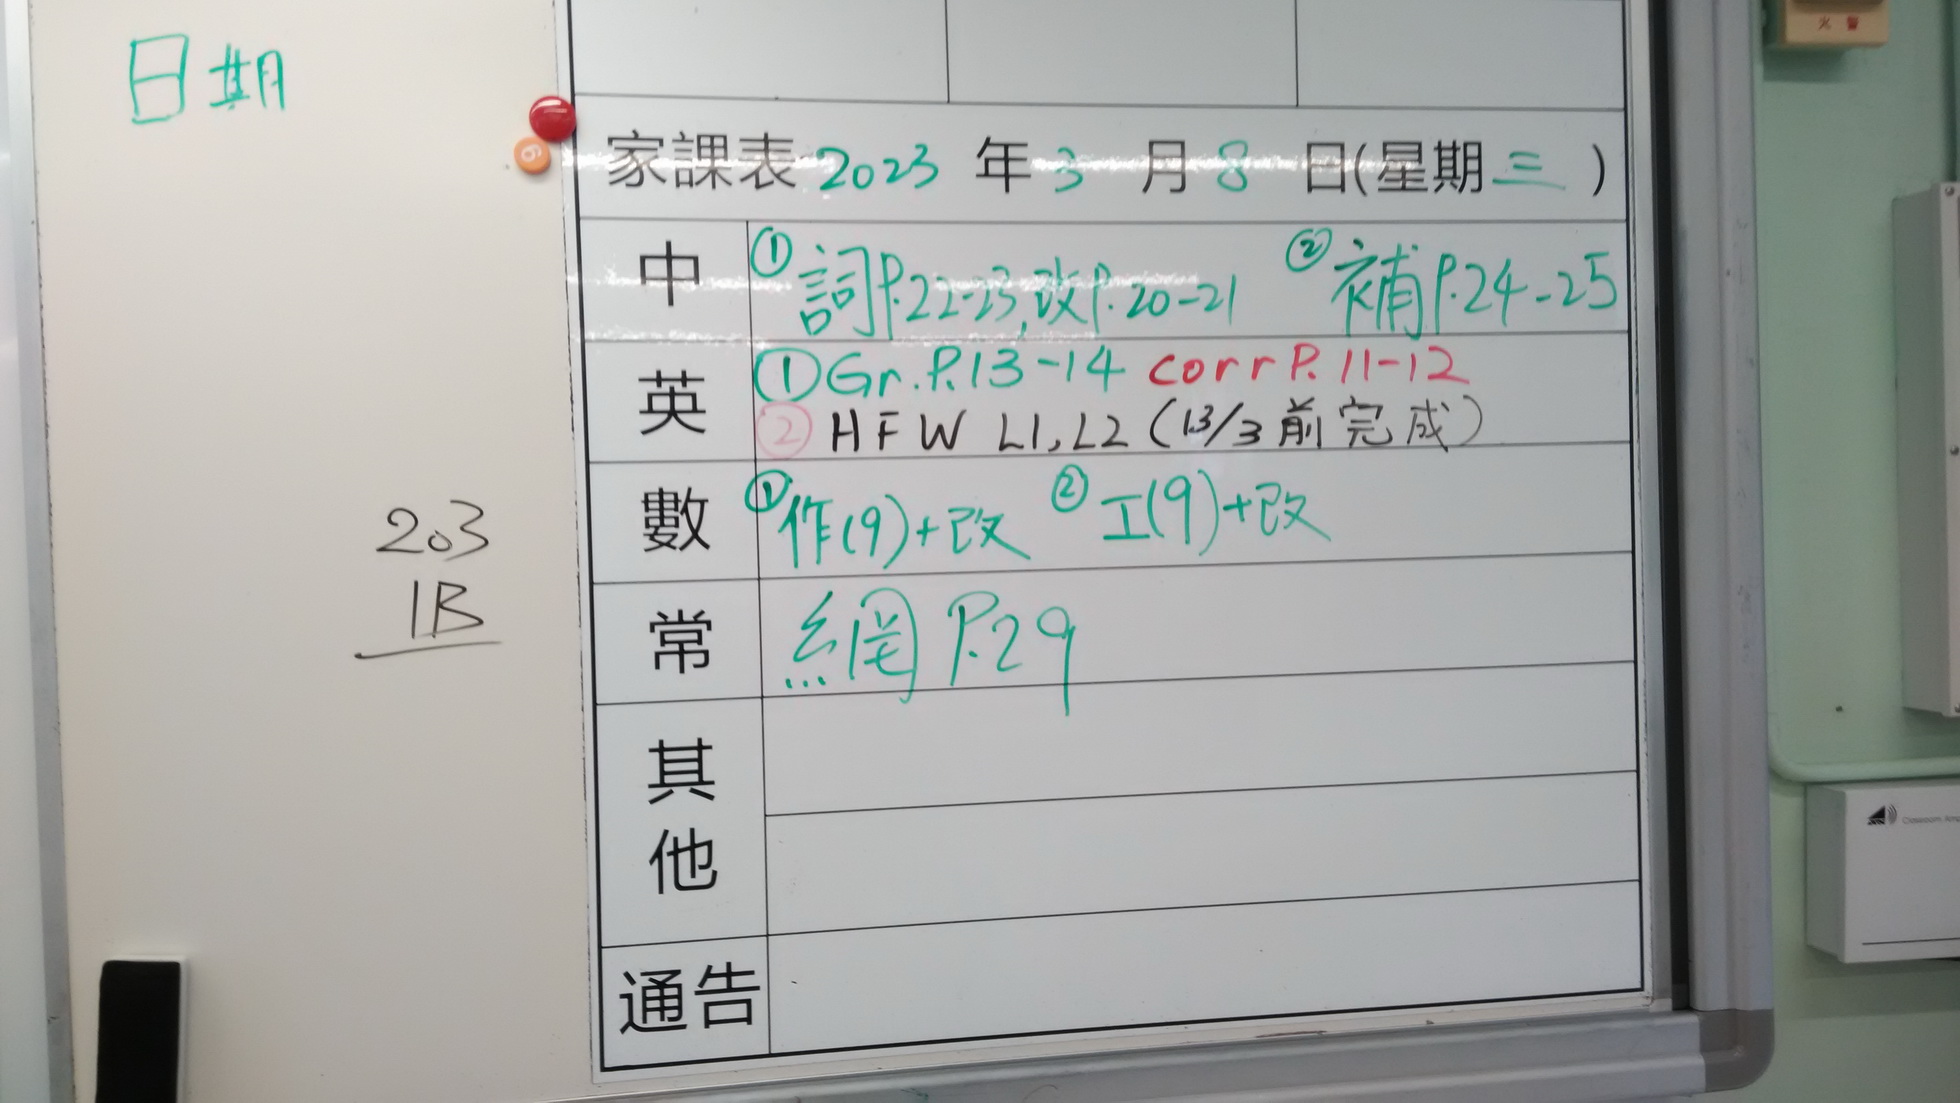 日期
203
1B
家課表 2023 年 3 月 8 日(星期三)
中 ① 詞P.22-23,改P.20-21 ② 補P.24-25
英 ① Gr. P.13-14 corr P. 11-12
② HFW L1, L2 (13/3前完成)
數 ① 作(9)+改 ② 工(9)+改
常 網 P.29
其他
通告
火警